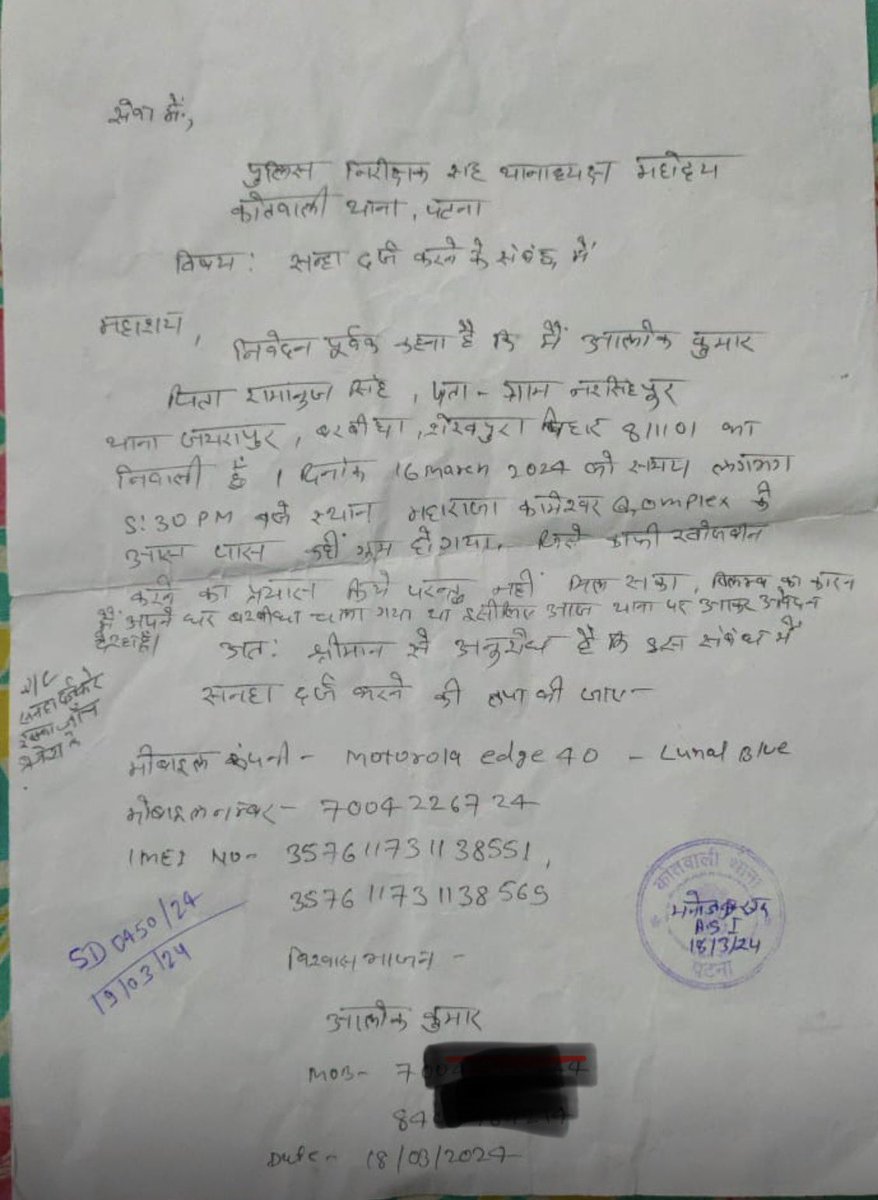 सेवा में,
पुलिस निरीक्षक सह थानाध्यक्ष महोदय
कोतवाली थाना, पटना
विषय: सन्हा दर्ज करने के संबंध में
महाशय,
निवेदन पूर्वक कहना है कि मैं आलोक कुमार
पिता रामानुज सिंह, पता - ग्राम नरसिंहपुर
थाना जयरापुर, बरबीघा, शेखपुरा बिहार 811101 का
निवासी हूँ। दिनांक 16 March 2024 को समय लगभग
5:30 PM बजे स्थान महाराजा कामेश्वर Complex के
आस पास कहीं गुम हो गया, जिसे काफी खोजबीन
करने का प्रयास किये परन्तु नहीं मिल सका, विलम्ब का कारन
मैं अपने घर बरबीघा चला गया था इसीलिए आज थाना पर आकर आवेदन
दे रहा हूँ।
अतः श्रीमान से अनुरोध है कि इस संबंध में
सनहा दर्ज करने की कृपा की जाए-
मोबाइल कंपनी - Motorola edge 40 - Lunal Blue
मोबाइल नम्बर - 7004226724
IMEI NO- 357611731138551,
357611731138569
विश्वास भाजन -
आलोक कुमार
MOB- 7
84
Date - 18/03/2024
सनहा दर्ज करे
SD 0450/24
19/03/24
कोतवाली थाना
A.S.I
18/3/24
पटना